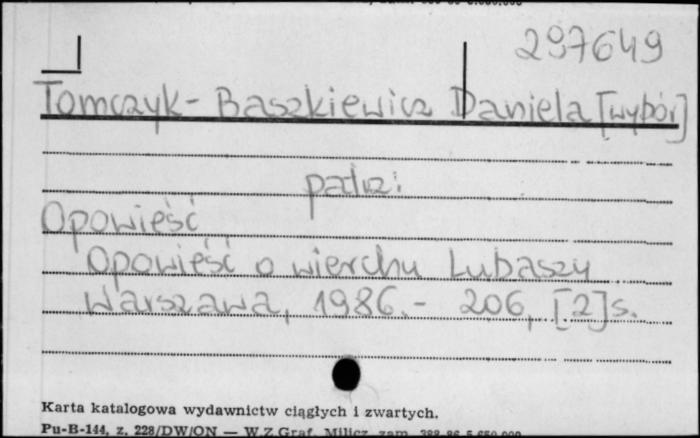 297649
Tomczyk-Baszkiewicz Daniela [wybór]
patrz:
Opowieść
Opowieść o wierchu Lubaszy
Warszawa, 1986.- 206, [2]s.
Karta katalogowa wydawnictw ciągłych i zwartych.
Pu-B-144, z. 228/DW/ON — W.Z.Graf. Milicz, zam.